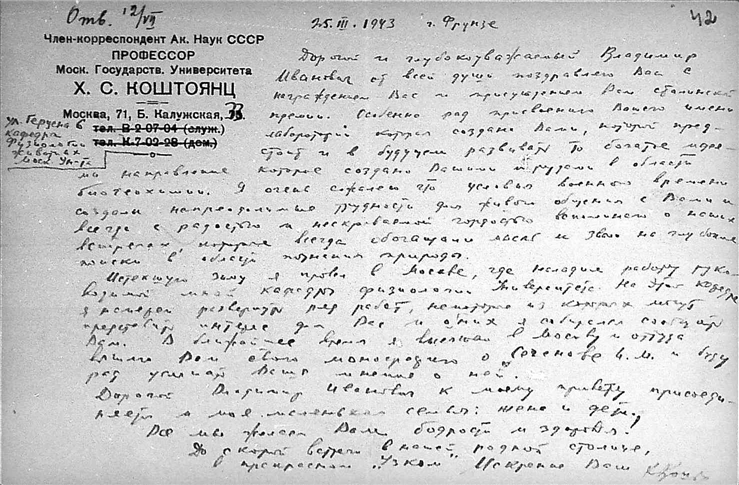 Отв. 12/VII
25.III.1943 г. Фрунзе
42
Член-корреспондент Ак. Наук СССР
ПРОФЕССОР
Моск. Государств. Университета
Х. С. КОШТОЯНЦ
Москва, 71, Б. Калужская, 33
тел. В-2-07-04 (служ.)
тел. К-7-02-28 (дом.)
ул. Герцена 6
кафедра
Физиологии
животных
Моск. Ун-та
Дорогой и глубокоуважаемый Владимир
Иванович от всей души поздравляю Вас с
награждением Вас и присуждением Вам сталинской
премии. Особенно рад присвоению Вашего имени
лаборатории которая создана Вами, которой пред-
стоит и в будущем развивать то богатое
направление которое создано Вашими трудами в области
биогеохимии. Я очень сожалею что условия военного времени
создали непреодолимые трудности для живого общения с Вами и
всегда с радостью и нескрываемой гордостью вспоминаю о наших
встречах, которые всегда обогащали мысль и звали на глубокие
поиски в области познания природы.
Истекшую зиму я провел в Москве, где наладил работу руко-
водимой мной кафедры физиологии Университета. На этой кафедре
я успел развернуть ряд работ, некоторые из которых могут
представить интерес для Вас и о них я собирался сообщить
Вам. В ближайшее время я выезжаю в Москву и оттуда
вышлю Вам свою монографию о Сеченове И.М. и буду
рад услышать Ваше мнение о ней.
Дорогой Владимир Иванович к моему привету присоеди-
няется и моя маленькая семья: жена и дети.
Все мы желаем Вам бодрости и здоровья.
До скорой встречи в нашей родной столице,
в прекрасном "Узком" Искренне Ваш